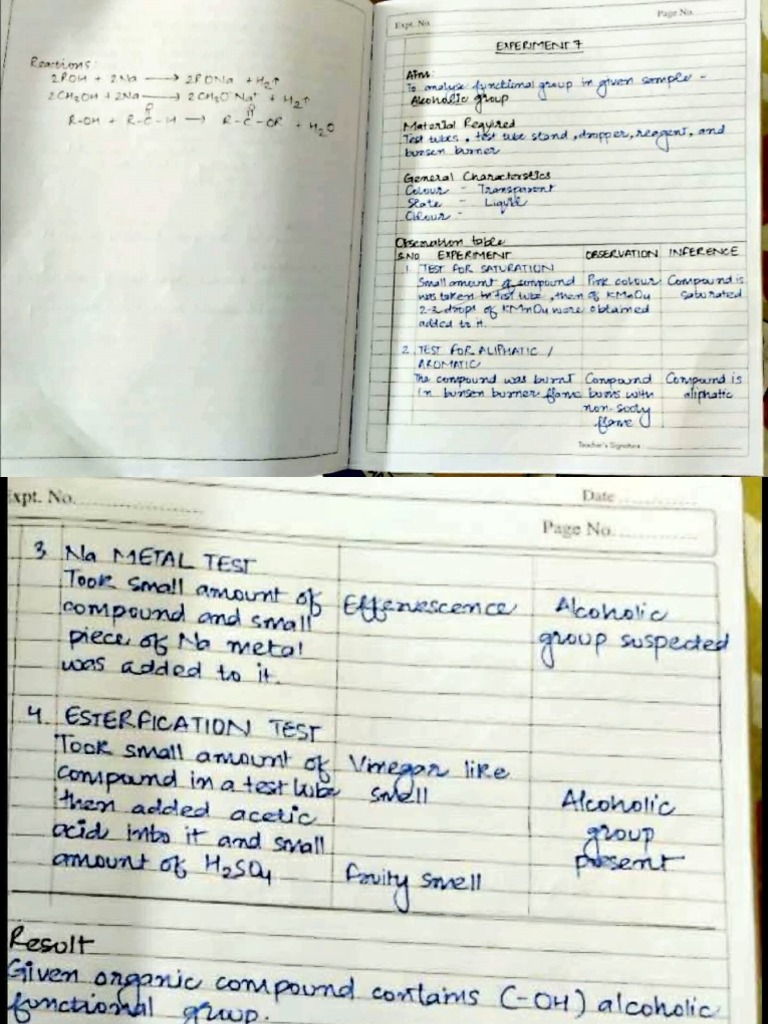 Reactions:
2ROH + 2Na → 2RONa + H₂↑
2CH₃OH + 2Na → 2CH₃O⁻Na⁺ + H₂↑
O O
R-OH + R-C-H → R-C-OR + H₂O
Expt. No.
Page No.
EXPERIMENT 7
Aim:
To analyse functional group in given sample -
Alcoholic group
Material Required
Test tubes, test tube stand, dropper, reagent, and
bunsen burner
General Characterstics
Colour - Transparent
State - Liquid
Odour -
Observation table
S.NO EXPERIMENT OBSERVATION INFERENCE
1. TEST FOR SATURATION
Small amount of compound Pink colour Compound is
was taken in test tube, then of KMnO₄ saturated
2-3 drops of KMnO₄ were obtained
added to it.
2. TEST FOR ALIPHATIC /
AROMATIC
The compound was burnt Compound Compound is
in bunsen burner flame burns with aliphatic
non-sooty
flame
Teacher's Signature
Expt. No.
Date
Page No.
3. Na METAL TEST
Took small amount of Effervescence Alcoholic
compound and small group suspected
piece of Na metal
was added to it.
4. ESTERFICATION TEST
Took small amount of Vinegar like
compound in a test tube smell
then added acetic Alcoholic
acid into it and small group
amount of H₂SO₄ fruity smell present
Result
Given organic compound contains (-OH) alcoholic
functional group.